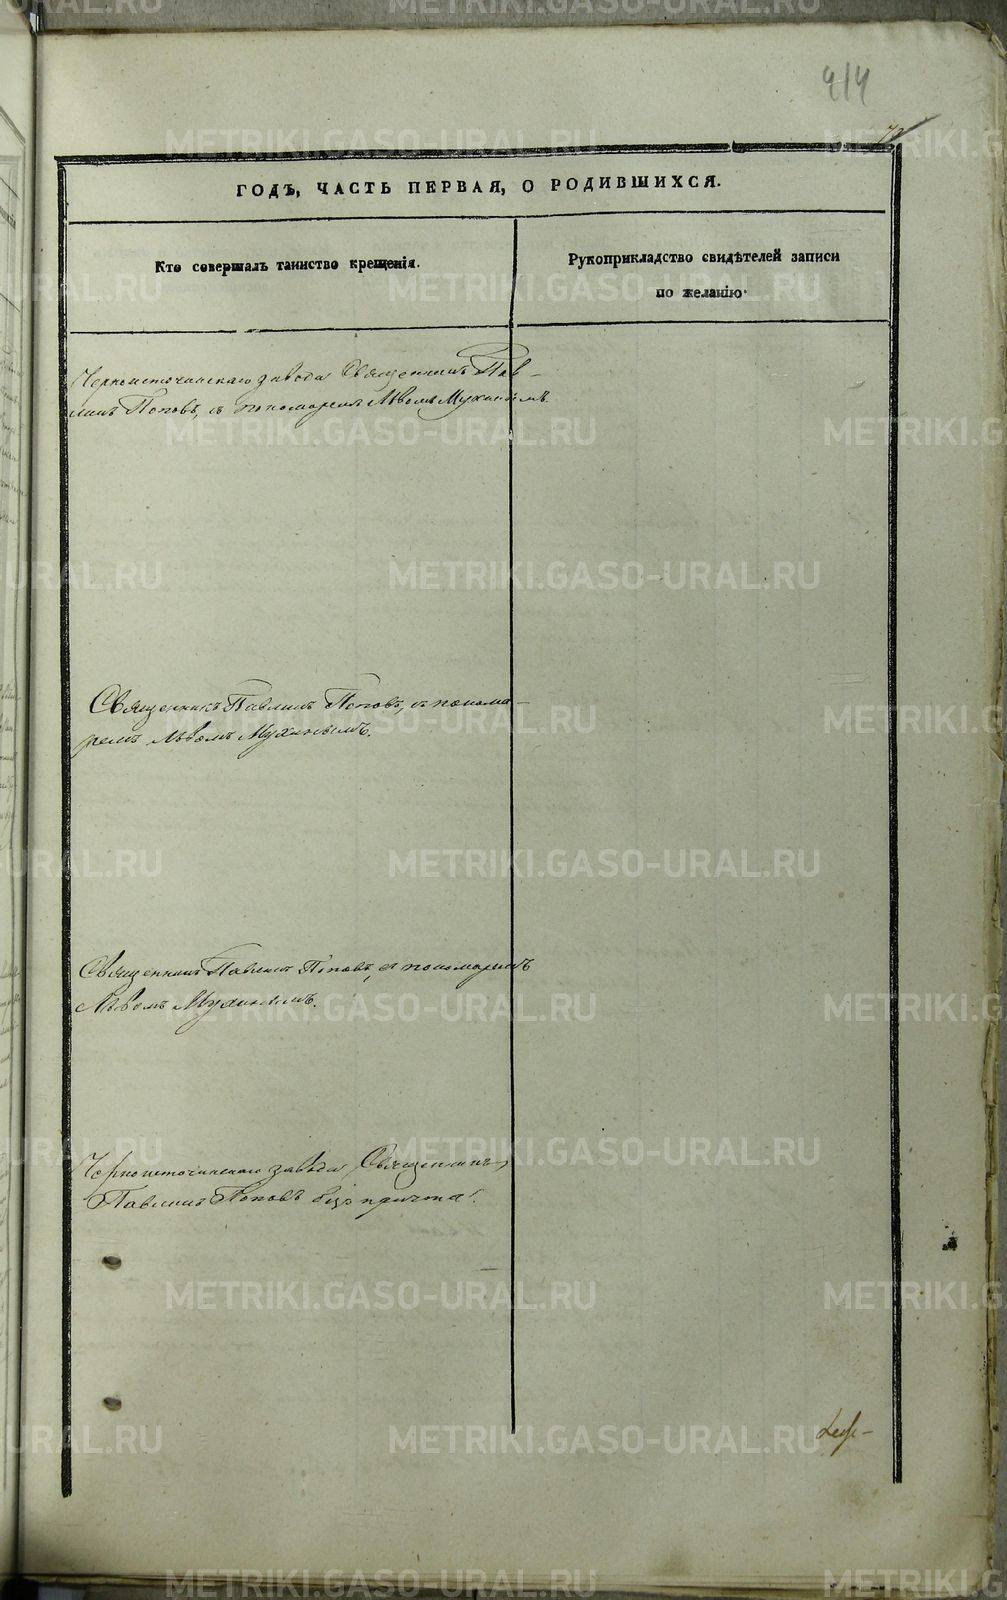 414
ГОДЪ, ЧАСТЬ ПЕРВАЯ, О РОДИВШИХСЯ.
Кто совершалъ таинство крещенія.
Рукоприкладство свидѣтелей записи
по желанію.
Черноисточинскаго завода Священникъ Пав-
линъ Поповъ, съ пономаремъ Львомъ Мухинымъ.
Священникъ Павлинъ Поповъ, съ понома-
ремъ Львомъ Мухинымъ.
Священникъ Павлинъ Поповъ, съ пономаремъ
Львомъ Мухинымъ.
Черноисточинскаго завода Священникъ
Павлинъ Поповъ безъ причта.
METRIKI.GASO-URAL.RU